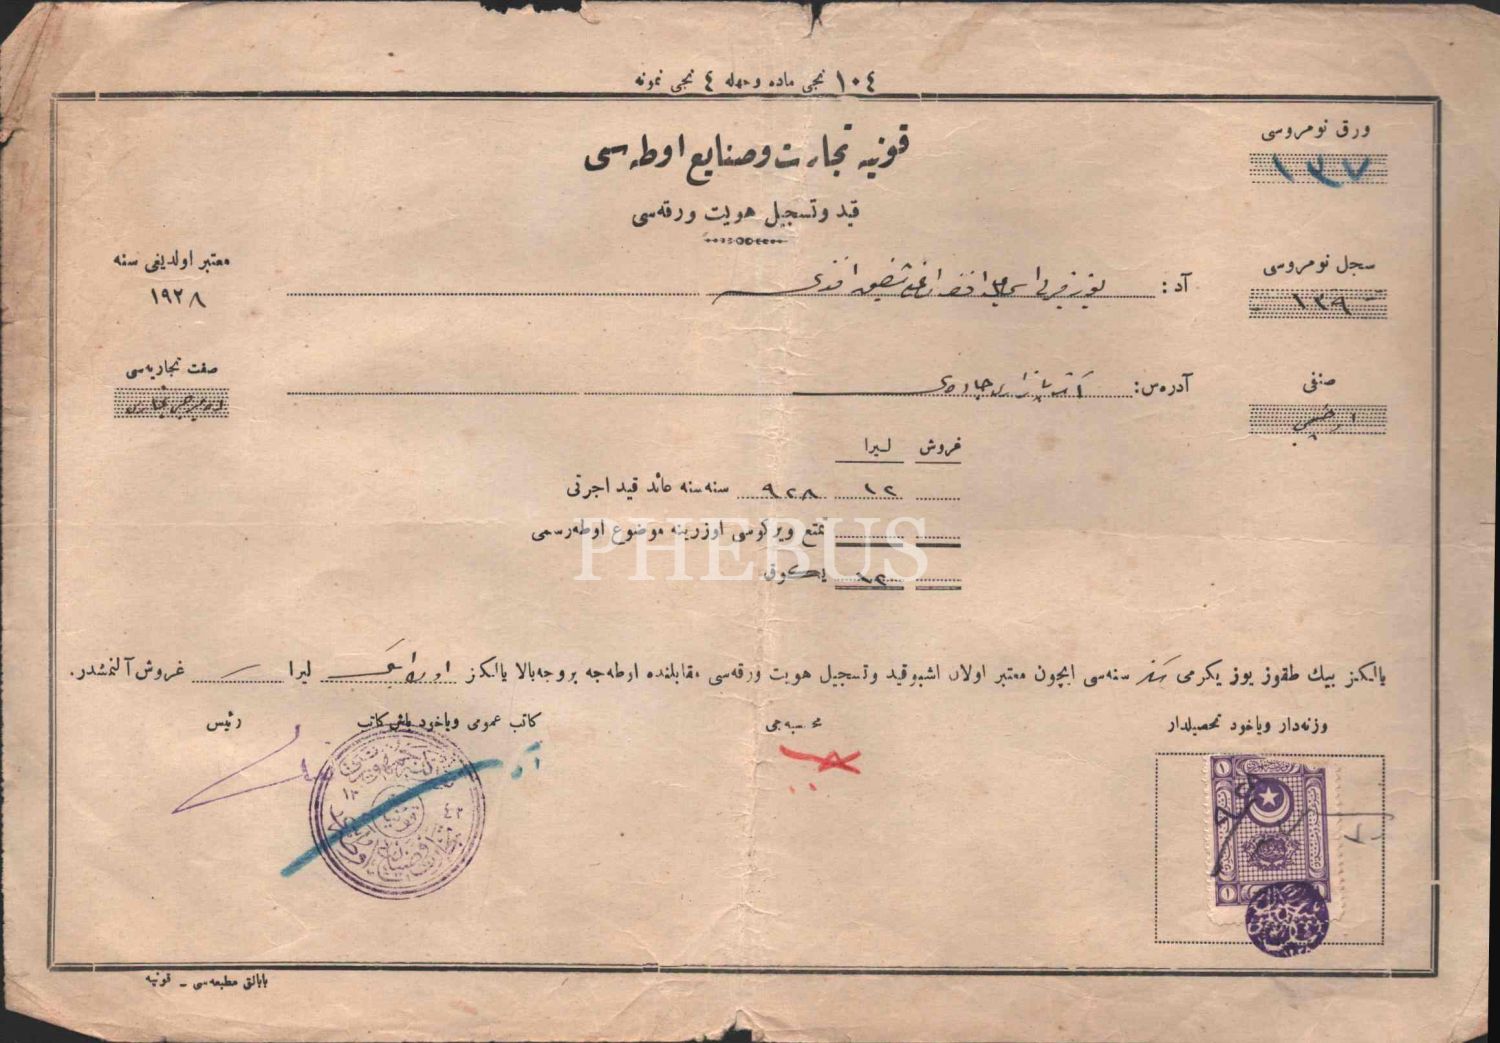 ١٠٤ نجی ماده وجهله ٤ نجی نمونه
ورق نومروسی
١٣٧
قونیه تجارت و صنایع اوطه‌سی
قید و تسجیل هویت ورقه‌سی
سجل نومروسی
١٣٩
آد :
افندی
معتبر اولدیغی سنه
١٩٢٨
صنفی
آدره‌س :
صفت تجاریه‌سی
غروش لیرا
١٢ ٩٢٨ سنه‌سنه عائد قید اجرتی
تمتع ویرکوسی اوزرینه موضوع اوطه‌رسمی
١٢ یكون
PHEBUS
یالکز بیك طقوز یوز یکرمی سکز سنه‌سی ایچون معتبر اولان اشبو قید و تسجیل هویت ورقه‌سی مقابلنده اوطه‌جه بروجه‌بالا یالکز اون ایکی لیرا غروش آلنمشدر.
وزنه‌دار ویاخود تحصیلدار
محاسبه‌جی
کاتب عمومی ویاخود باش کاتب
رئیس
بابالق مطبعه‌سی - قونیه